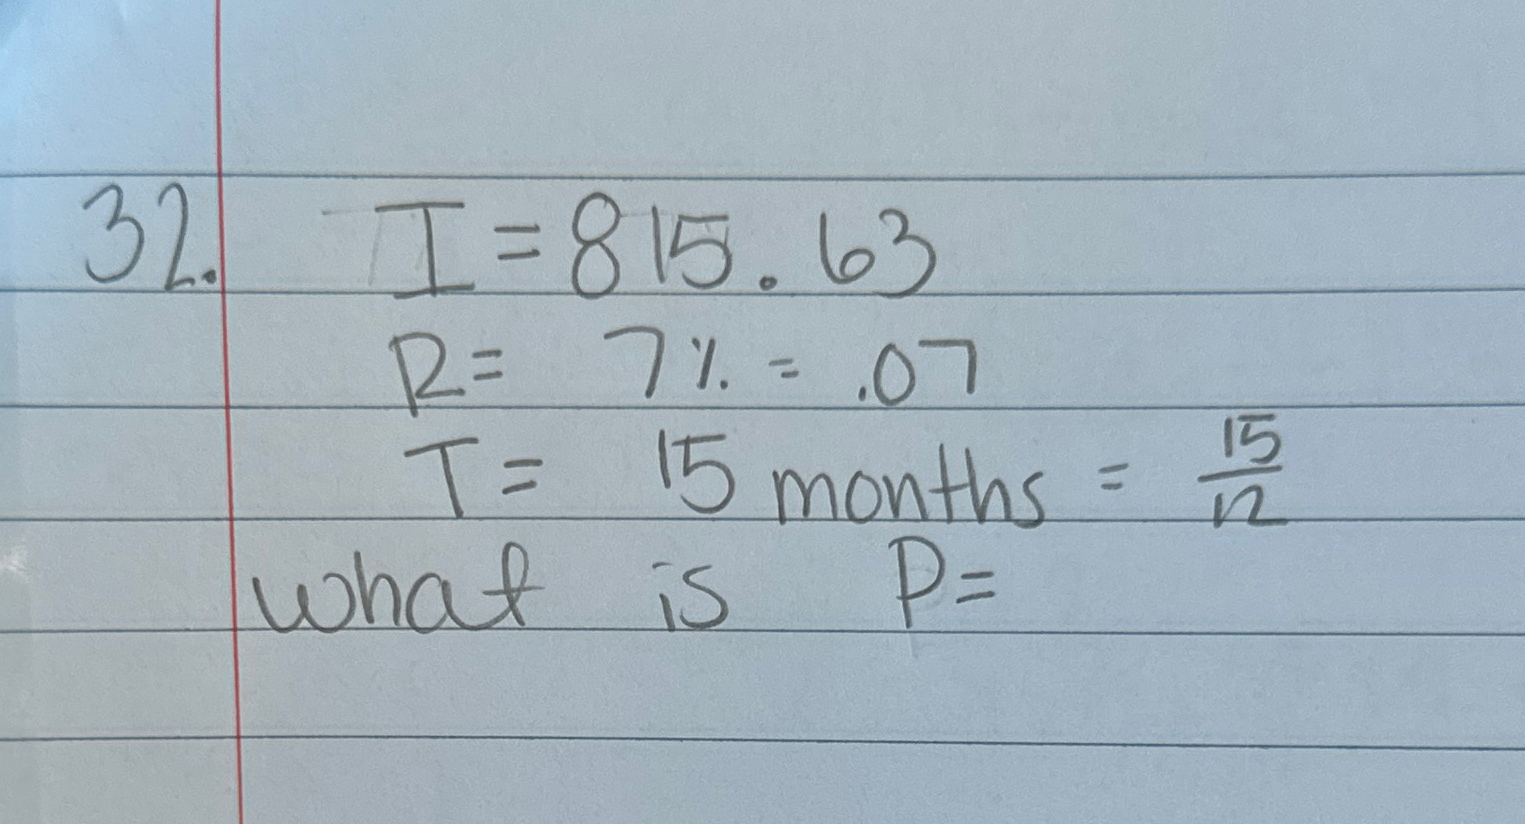 32. I = 815.63
R = 7% = .07
T = 15 months = 15/12
what is P=